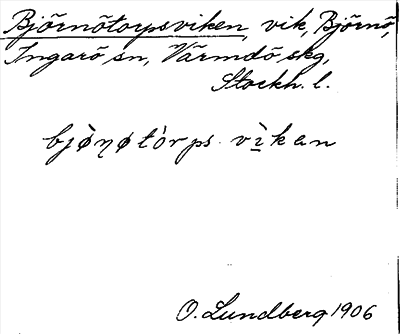 Björnötorpsviken, vik, Björnö,
Ingarö sn, Värmdö skg,
Stockh. l.
bjø̀ηøtòrps vìkan
O. Lundberg 1906